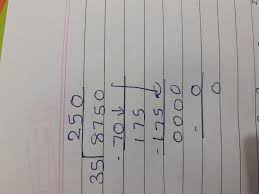 250
35 8750
-70↓
175
-175
0000
- 0
0